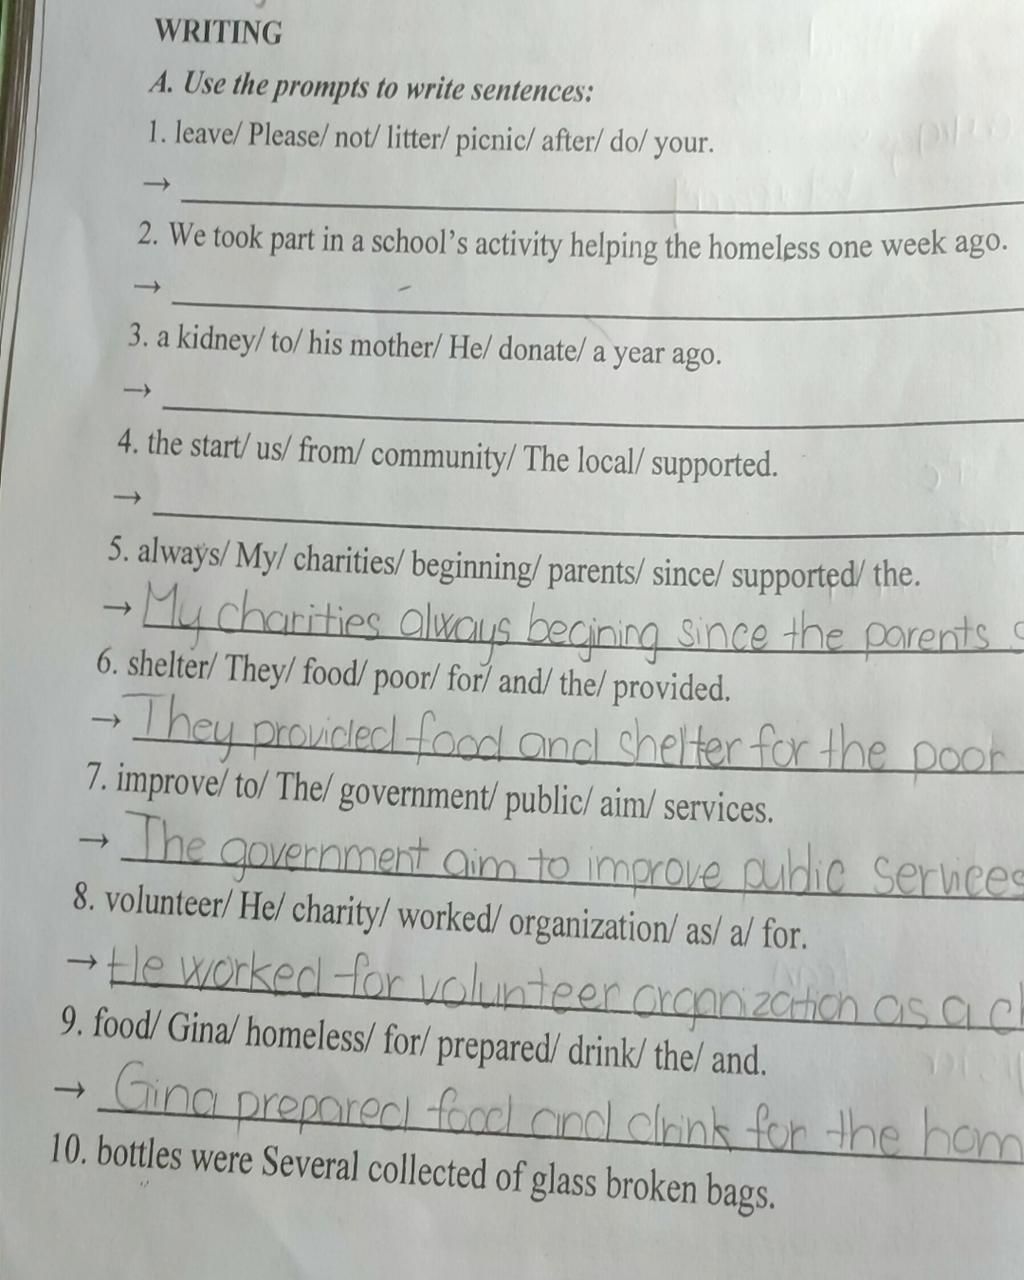 WRITING
A. Use the prompts to write sentences:
1. leave/ Please/ not/ litter/ picnic/ after/ do/ your.
→
2. We took part in a school's activity helping the homeless one week ago.
→
3. a kidney/ to/ his mother/ He/ donate/ a year ago.
→
4. the start/ us/ from/ community/ The local/ supported.
→
5. always/ My/ charities/ beginning/ parents/ since/ supported/ the.
→ My charities always begining since the parents
6. shelter/ They/ food/ poor/ for/ and/ the/ provided.
→ They provided food and shelter for the poor
7. improve/ to/ The/ government/ public/ aim/ services.
→ The government aim to improve public services
8. volunteer/ He/ charity/ worked/ organization/ as/ a/ for.
→ He worked for volunteer organization as a
9. food/ Gina/ homeless/ for/ prepared/ drink/ the/ and.
→ Gina prepared food and drink for the hom
10. bottles were Several collected of glass broken bags.